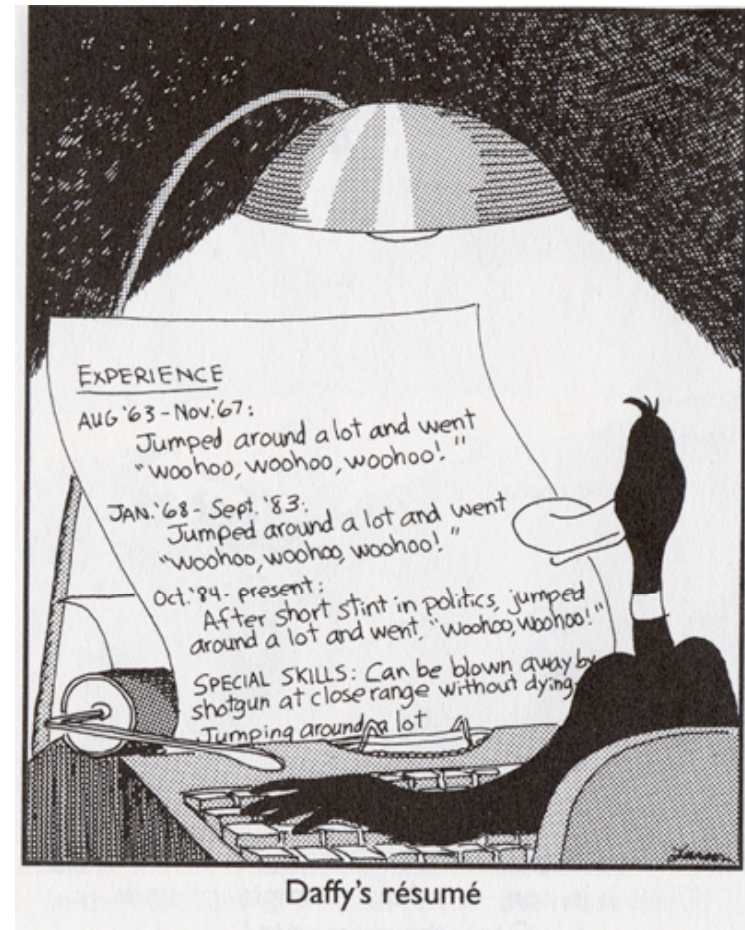 EXPERIENCE
AUG '63 - Nov. '67:
Jumped around a lot and went
"woohoo, woohoo, woohoo!"
JAN. '68 - Sept. '83:
Jumped around a lot and went
"woohoo, woohoo, woohoo!"
Oct. '84 - present:
After short stint in politics, jumped
around a lot and went, "woohoo, woohoo!"
SPECIAL SKILLS: Can be blown away by
shotgun at close range without dying.
Jumping around a lot
Larson
Daffy's résumé